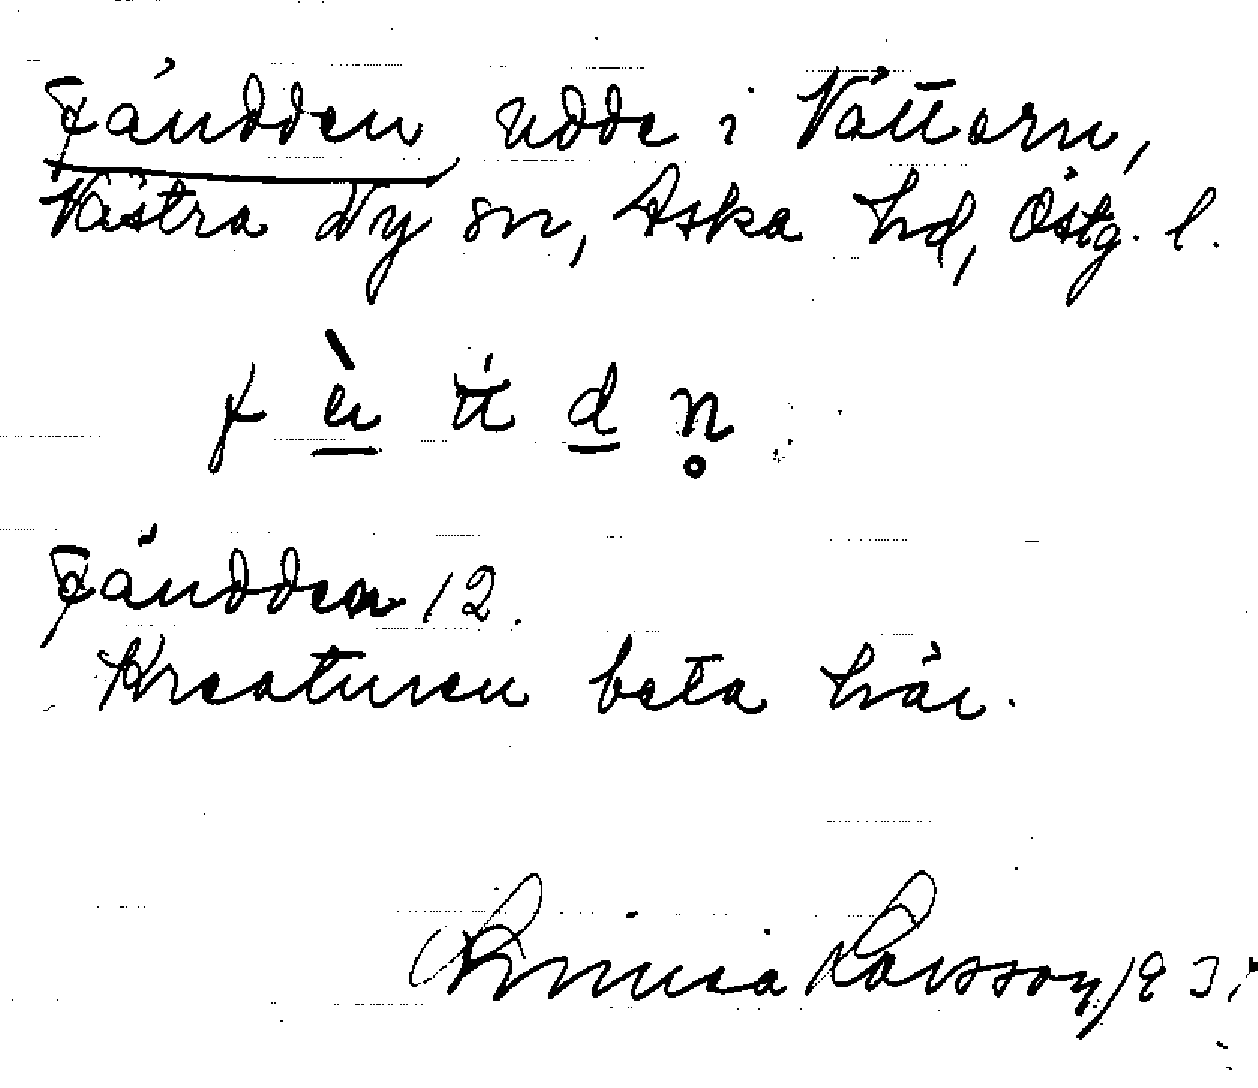 Fäudden, udde i Vättern,
Västra Ny sn, Aska hd, Östg. l.
Fäudden 12.
Kreaturen beta här.
Larsson, 193